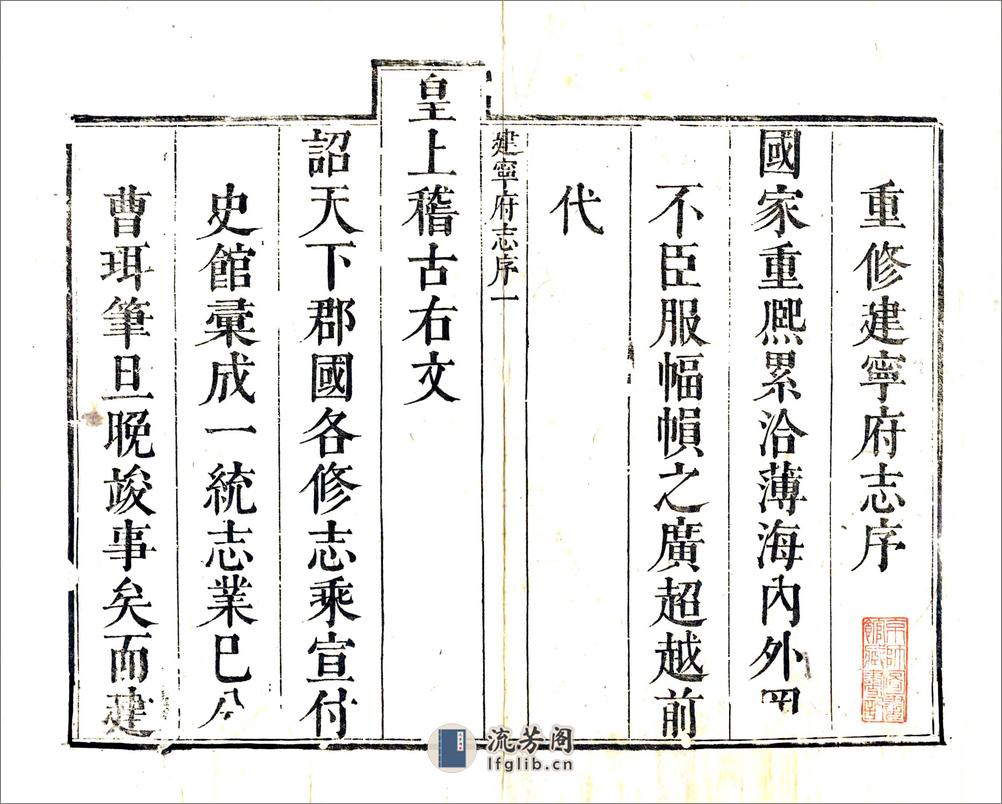 重修建寧府志序
京師圖書館藏書記
國家重熈累洽薄海內外罔
不臣服幅幀之廣超越前
代
建寧府志序一
皇上稽古右文
詔天下郡國各修志乘宣付
史館彙成一統志業巳分
曹珥筆旦晚竣事矣而建
流芳阁
lfglib.cn